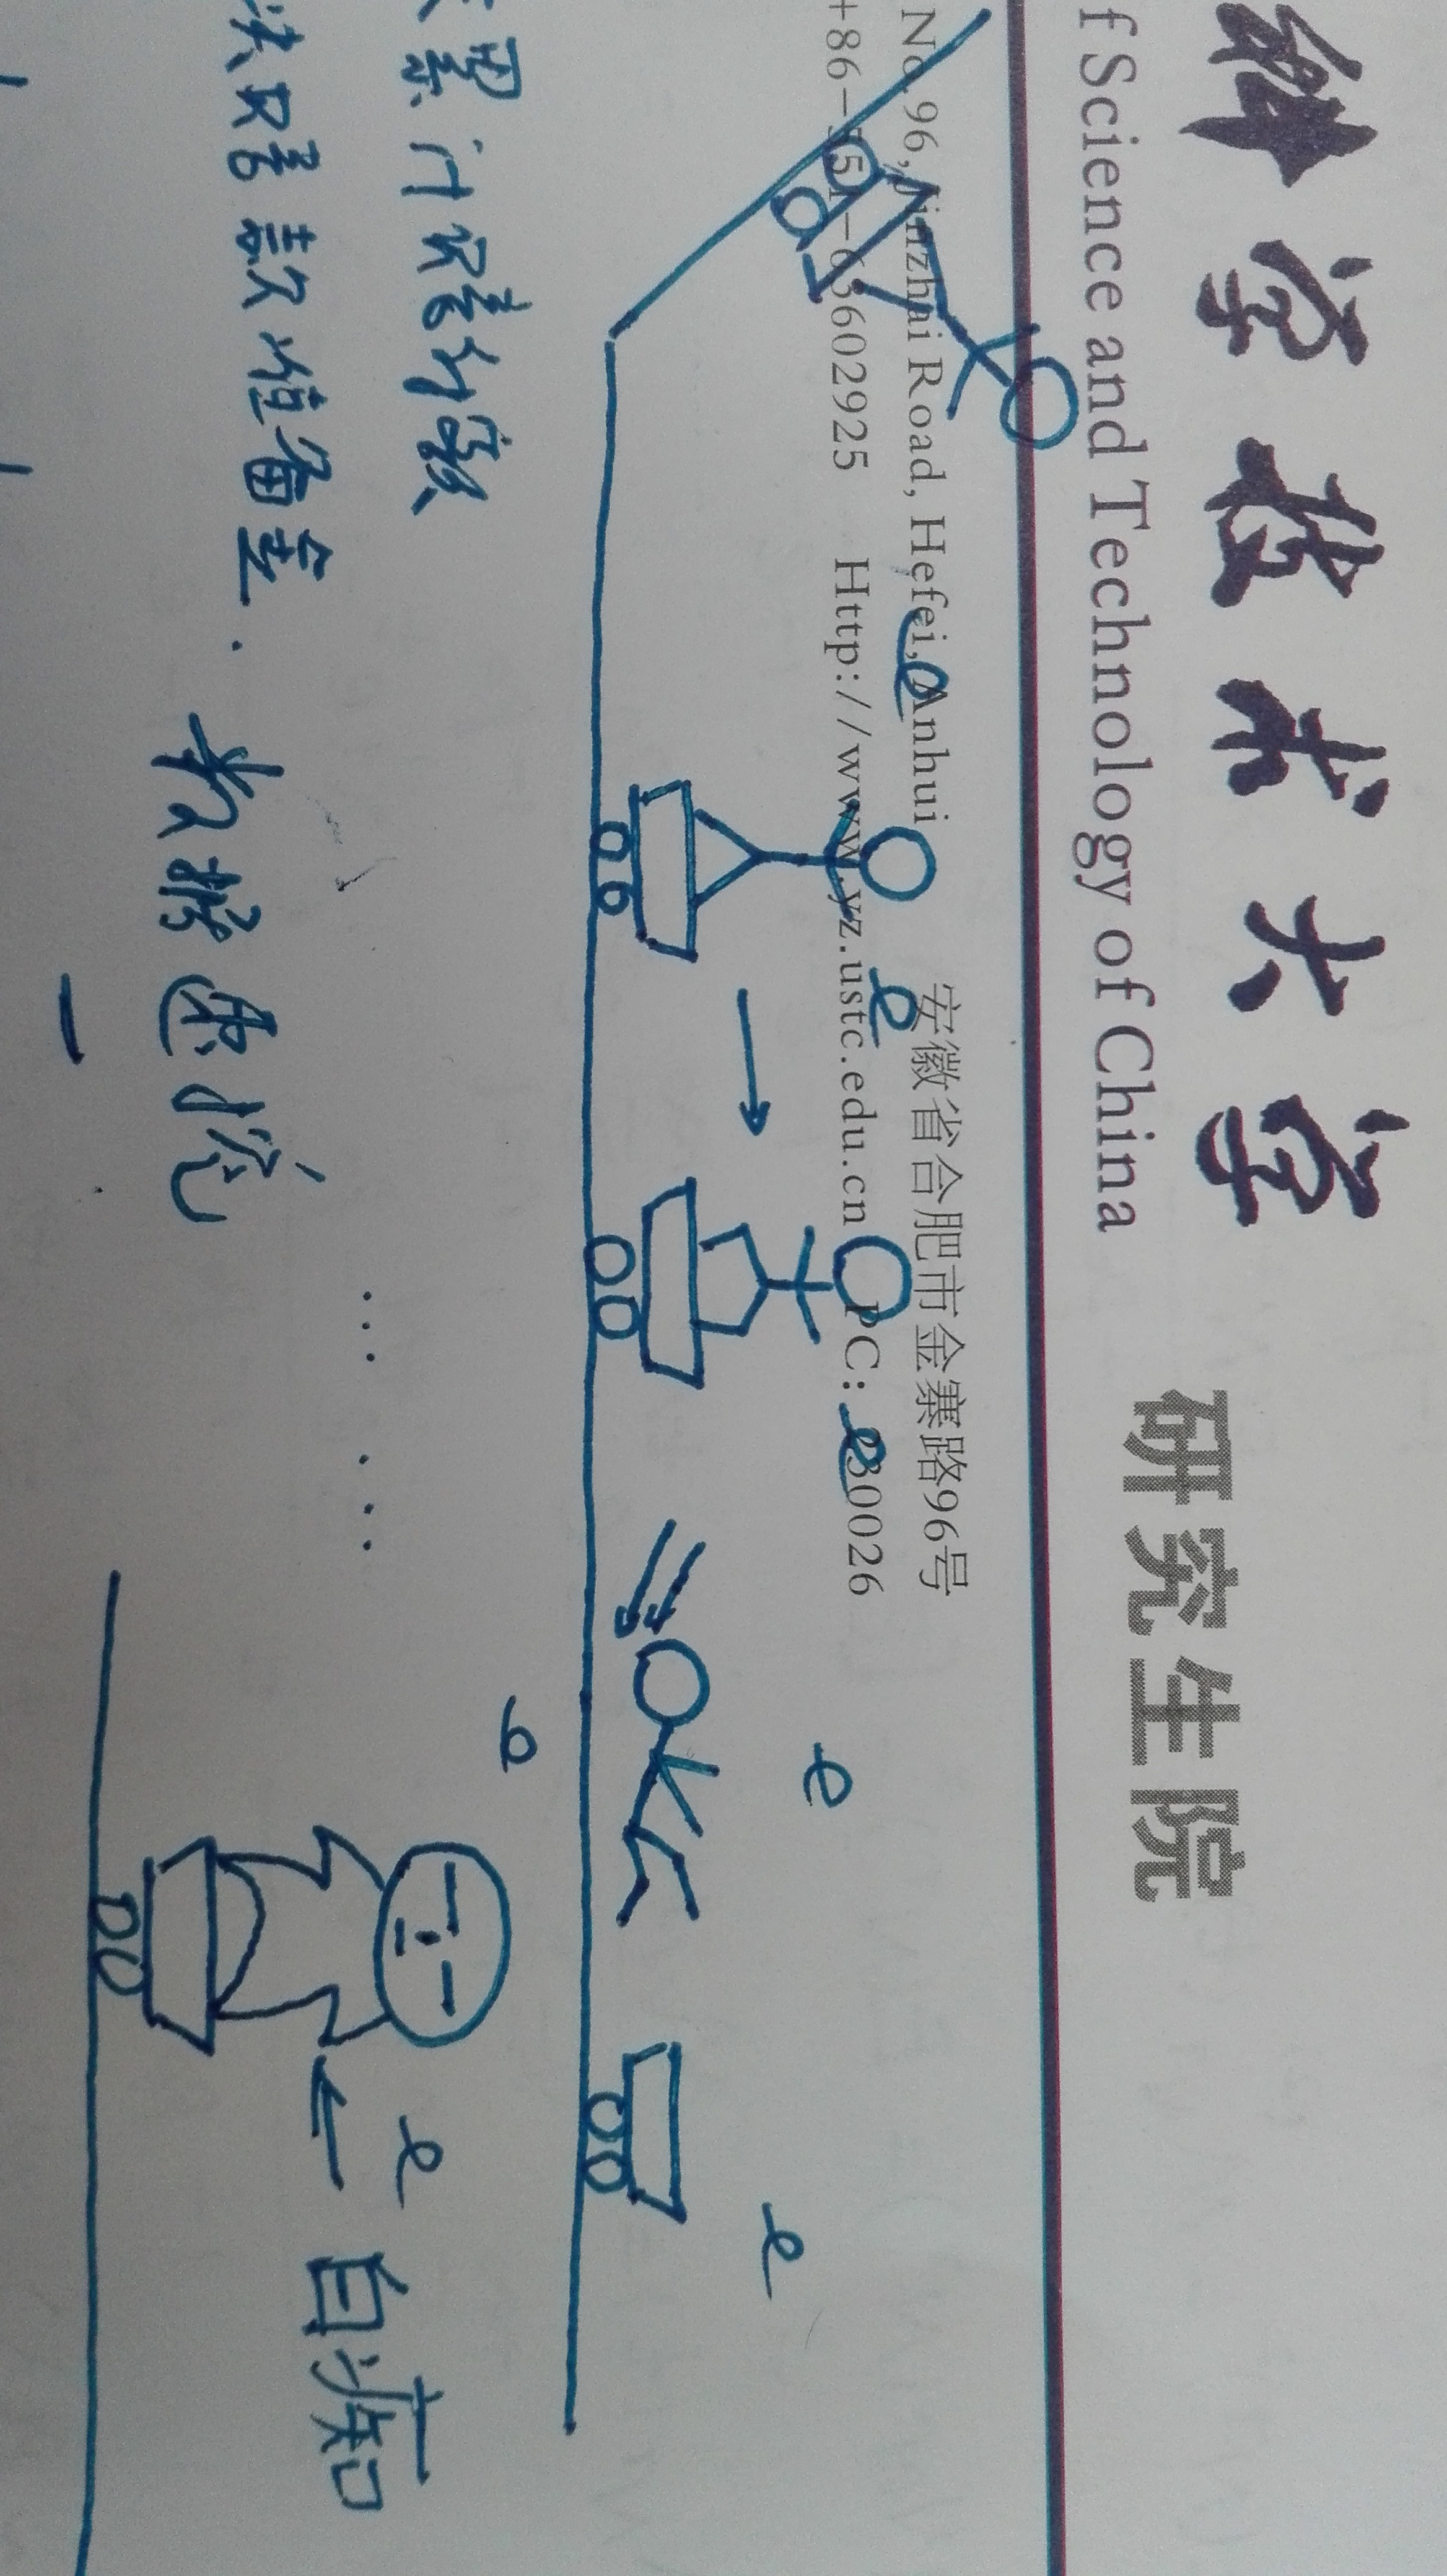 科学技术大学
研究生院
f Science and Technology of China
No.96, Jinzhai Road, Hefei, Anhui 安徽省合肥市金寨路96号
+86-551-63602925 Http://www.yz.ustc.edu.cn PC: 230026
e e e e e
累计赔付额
e
e 白痴
决赔款准备金.
... ...
数据
挖